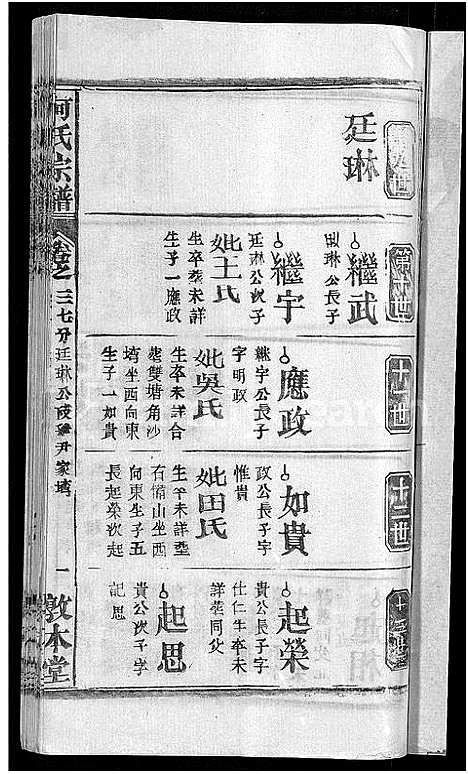 第九世
廷琳
第十世
繼武
琳公長子
繼宇
廷琳公次子
妣王氏
生卒葬未詳
生子一應政
十一世
應政
繼宇公長子
字明政
妣吳氏
生卒未詳合
塟雙塘角沙
塆坐西向東
生子一如貴
十二世
如貴
政公長子字
惟貴
妣田氏
生卒未詳塟
石備山坐西
向東生子五
長起榮次起
十三世
起榮
貴公長子字
仕仁生卒未
詳葬同父
起思
貴公次子字
記思
何氏宗譜
卷之三
七分廷琳公
尹家塆
一
敦本堂